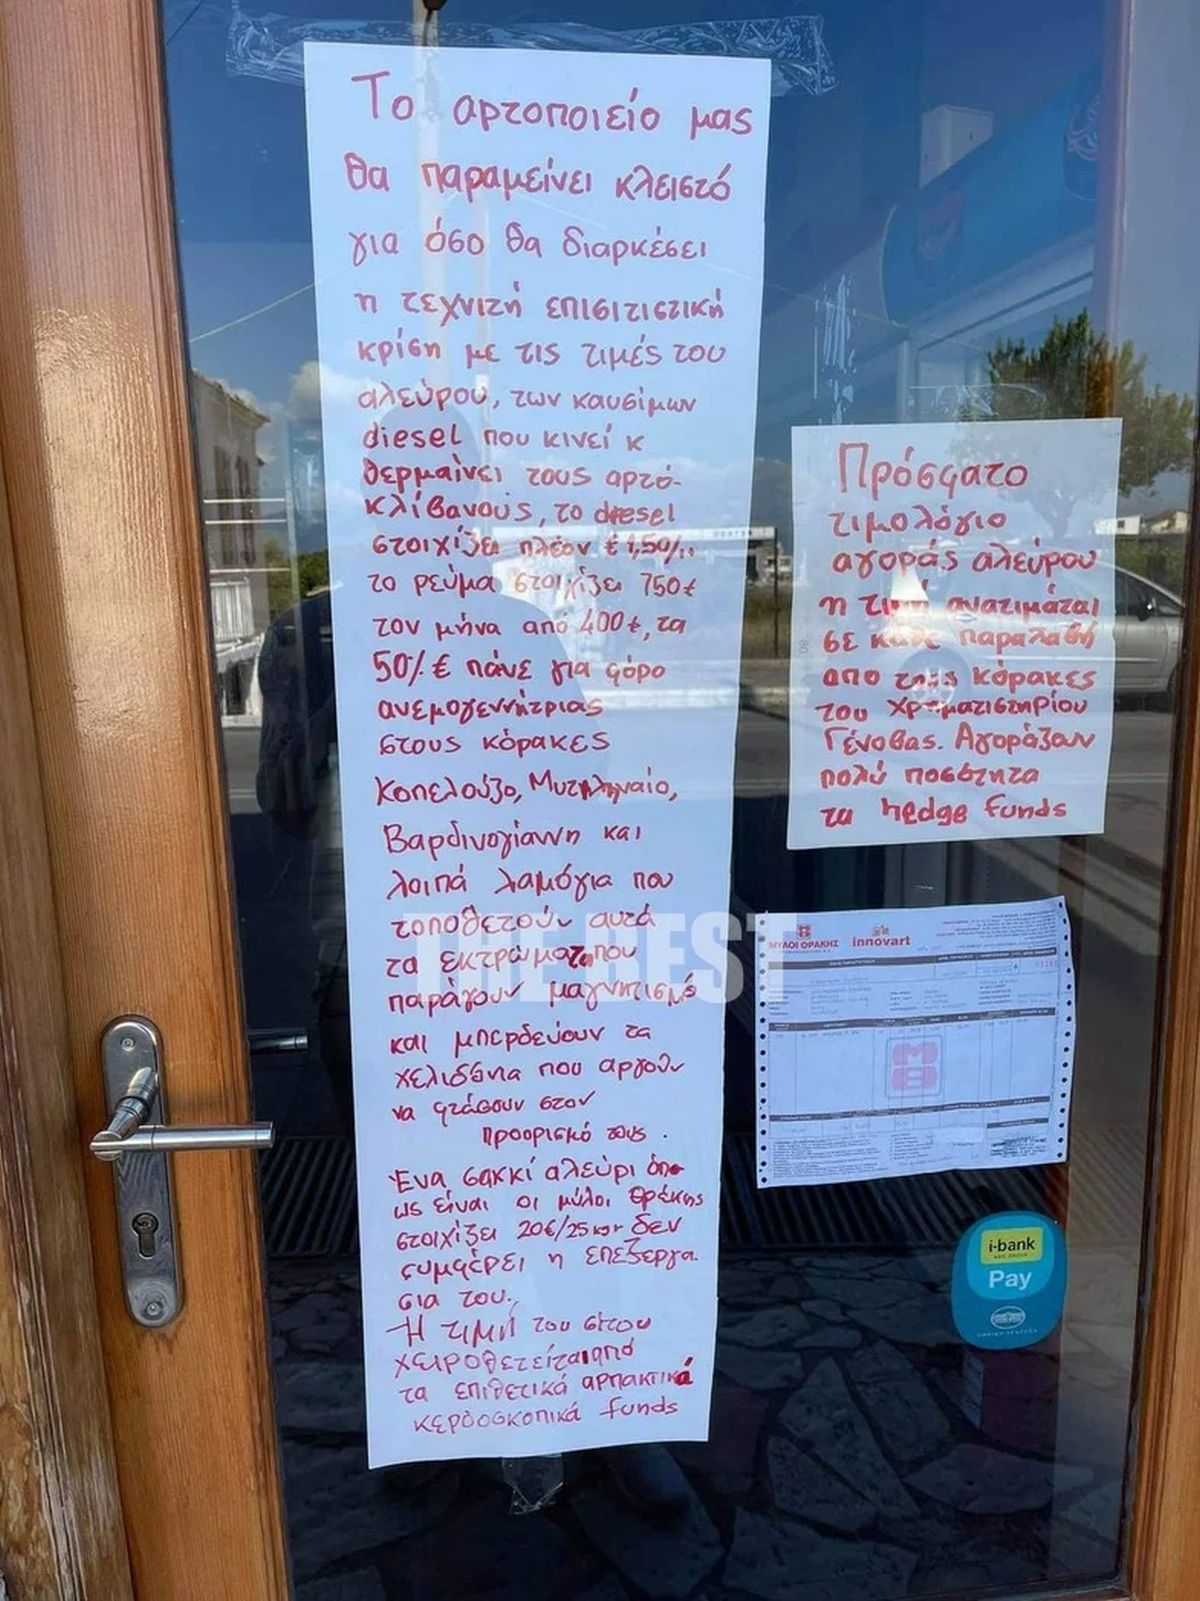 Το αρτοποιείο μας
θα παραμείνει κλειστό
για όσο θα διαρκέσει
η τεχνιτή επισιτιστική
κρίση με τις τιμές του
αλεύρου, των καυσίμων
diesel που κινεί κ
θερμαίνει τους αρτό-
κλίβανους, το diesel
στοιχίζει πλέον € 1,50/λ
το ρεύμα στοιχίζει 750€
τον μήνα από 400€, τα
50% € πάνε για φόρο
ανεμογεννήτριας
στους κόρακες
Κοπελούζο, Μυτιληναίο,
Βαρδινογιάννη και
λοιπά λαμόγια που
τοποθετούν αυτά
τα εκτρώματα που
παράγουν μαγνητισμό
και μπερδεύουν τα
χελιδόνια που αργούν
να φτάσουν στον
προορισμό τους.
Ένα σακκί αλεύρι όπ
ως είναι οι μύλοι Θράκης
στοιχίζει 20€/25κgr δεν
συμφέρει η επεξεργα-
σια του.
Η τιμή του σίτου
χειροθετείται από
τα επιθετικά αρπακτικά
κερδοσκοπικά funds
Πρόσφατο
τιμολόγιο
αγοράς αλεύρου
η τιμή ανατιμάται
σε κάθε παραλαβή
απο τους κόρακες
του Χρηματιστηρίου
Γένοβας. Αγοράζουν
πολύ ποσότητα
τα hedge funds
THE BEST
ΜΥΛΟΙ ΘΡΑΚΗΣ innovart
i-bank
Pay